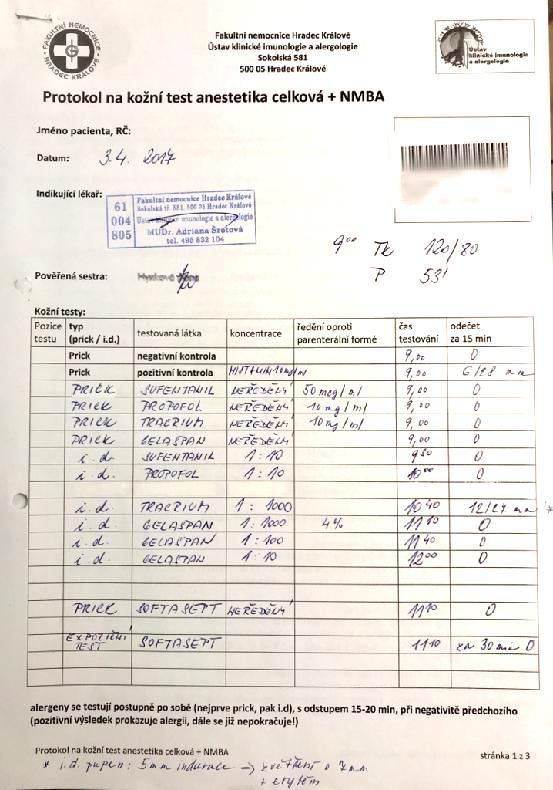 FAKULTNÍ NEMOCNICE
HRADEC KRÁLOVÉ
Fakultní nemocnice Hradec Králové
Ústav klinické imunologie a alergologie
Sokolská 581
500 05 Hradec Králové
Ústav
klinické imunologie
a alergologie
Protokol na kožní test anestetika celková + NMBA
Jméno pacienta, RČ:
Datum: 3.4. 2017
Indikující lékař:
61
004
805
Fakultní nemocnice Hradec Králové
Sokolská tř. 581, 500 05 Hradec Králové
Ústav klinické imunologie a alergologie
MUDr. Adriana Šretová
tel. 495 832 104
9 00 TK 120/80
P 53'
Pověřená sestra:
Kožní testy:
Pozice testu typ (prick / i.d.) testovaná látka koncentrace ředění oproti parenterální formě čas testování odečet za 15 min
Prick negativní kontrola 9,00 0
Prick pozitivní kontrola 9,00
PRICK SUFENTANIL NEŘEDĚNÝ 50 mcg/ml 9,00 0
PRICK PROPOFOL NEŘEDĚNÝ 10 mg/ml 9,00 0
PRICK TRACRIUM NEŘEDĚNÝ 10 mg/ml 9,00 0
PRICK GELASPAN NEŘEDĚNÝ 9,00 0
i.d. SUFENTANIL 1:10 0
i.d. PROPOFOL 1:10 10 00 0
i.d. TRACRIUM 1:1000 10 40 *
i.d. GELASPAN 1:1000 4% 0
i.d. GELASPAN 1:100 11 40 0
i.d. GELASPAN 1:10 12 00 0
PRICK SOFTASEPT NEŘEDĚNÝ 11 10 0
EXPOZIČNÍ TEST SOFTASEPT 11 10 za 30 min 0
alergeny se testují postupně po sobě (nejprve prick, pak i.d), s odstupem 15-20 min, při negativitě předchozího
(pozitivní výsledek prokazuje alergii, dále se již nepokračuje!)
Protokol na kožní test anestetika celková + NMBA
stránka 1 z 3
* i.d. pupen: 5mm indurace → zvětšení o 7mm
+ erytém